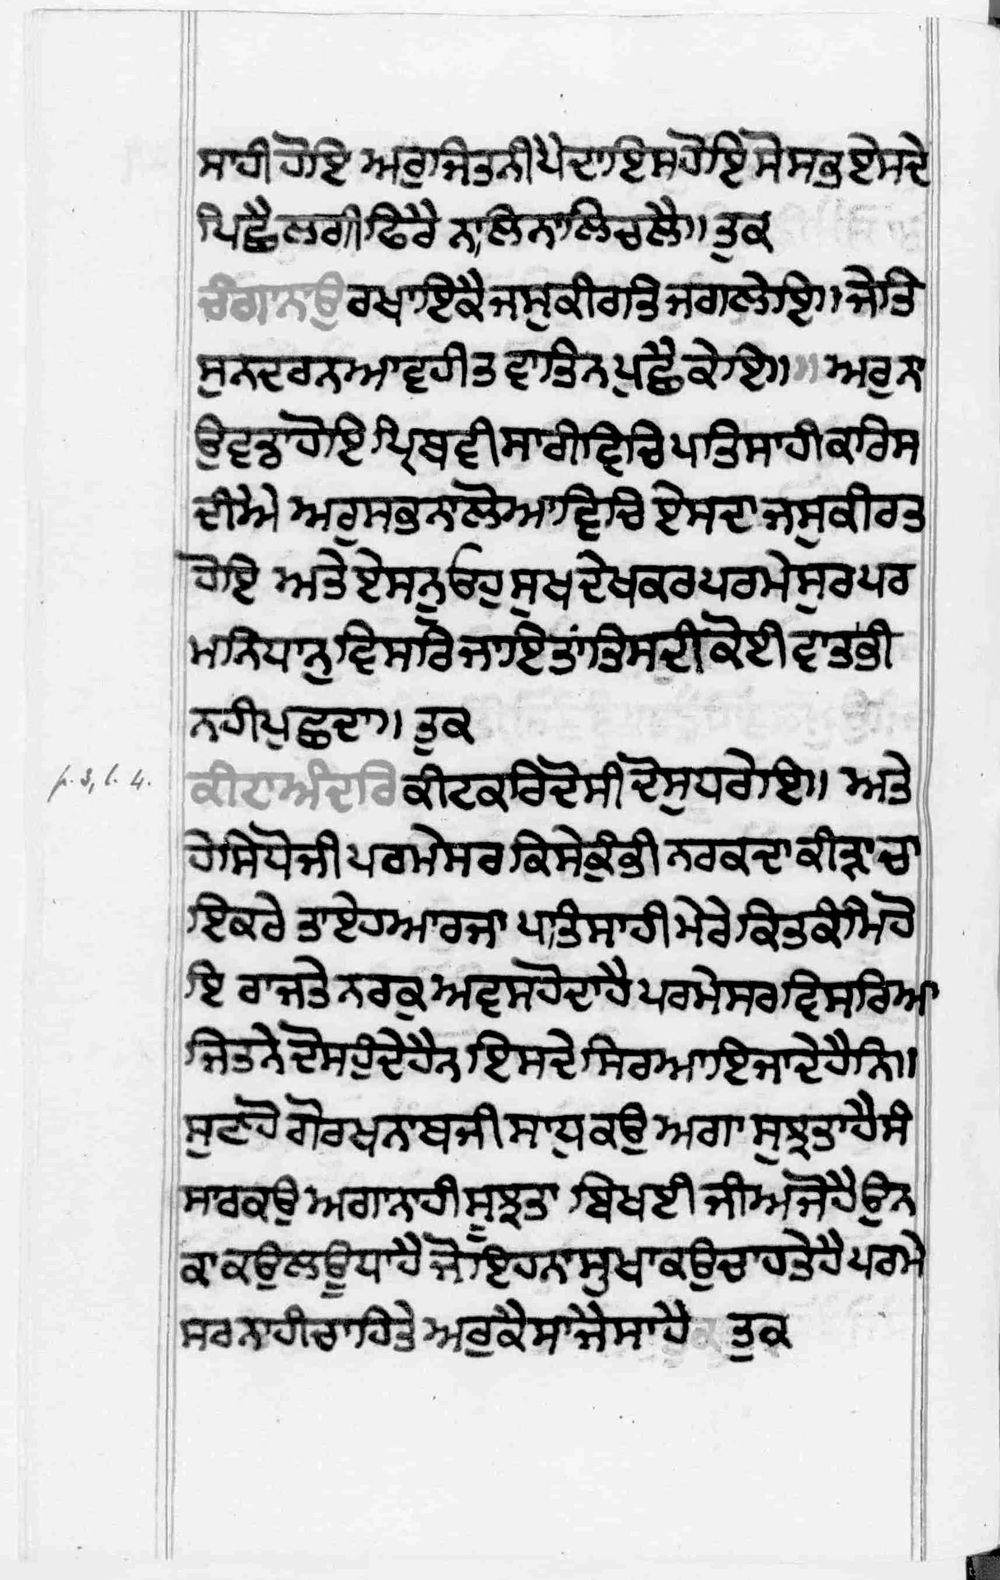 ਸਾਹੀ ਹੋਇ ਅਰੁ ਜਿਤਨੀ ਪੈਦਾਇਸ ਹੋਇ ਸੋ ਸਭੁ ਏਸਦੇ
ਪਿਛੈ ਲਗੀ ਫਿਰੈ ਨਾਲਿ ਨਾਲਿ ਚਲੈ॥ ਤੁਕ
ਚੰਗਾ ਨਾਉ ਰਖਾਇਕੈ ਜਸੁ ਕੀਰਤਿ ਜਗ ਲੇਇ॥ ਜੇ ਤਿ
ਸੁ ਨਦਰ ਨ ਆਵਹੀ ਤ ਵਾਤ ਨ ਪੁਛੈ ਕੇਇ॥ ਅਰੁ ਨਾ
ਉ ਵਡਾ ਹੋਇ ਪ੍ਰਿਥਵੀ ਸਾਰੀ ਵਿਚਿ ਪਾਤਿਸਾਹੀ ਕਾਰਿ ਸ
ਦੀਐ ਅਰੁ ਸਭਨਾ ਲੋਆ ਵਿਚਿ ਏਸਦਾ ਜਸੁ ਕੀਰਤ
ਹੋਇ ਅਤੇ ਏਸਨੁ ਓਹੁ ਸੁਖ ਦੇਖਕਰ ਪਰਮੇਸੁਰ ਪਰ
ਮਨਿਧਾਨੁ ਵਿਸਰਿ ਜਾਇ ਤਾਂ ਤਿਸਦੀ ਕੋਈ ਵਾਤ ਭੀ
ਨਹੀ ਪੁਛਦਾ॥ ਤੁਕ
p. 3, l. 4.
ਕੀਟਾ ਅੰਦਰਿ ਕੀਟ ਕਰਿ ਦੋਸੀ ਦੋਸੁ ਧਰੇਇ॥ ਅਤੇ
ਹੇ ਸਿਧੋ ਜੀ ਪਰਮੇਸਰ ਕਿਸੇ ਕੁੰ ਭੀ ਨਰਕ ਦਾ ਕੀੜਾ ਚਾ
ਇ ਕਰੇ ਤਾ ਏਹ ਆਰਜਾ ਪਾਤਿਸਾਹੀ ਮੇਰੇ ਕਿਤ ਕੰਮਿ ਹੋ
ਇ ਰਾਜ ਤੇ ਨਰਕੁ ਅਵਸ ਹੋਦਾ ਹੈ ਪਰਮੇਸਰ ਵਿਸਰਿਆ
ਜਿਤਨੇ ਦੋਸ ਹੁੰਦੇ ਹੈਨ ਇਸਦੇ ਸਿਰ ਆਇ ਜਾਦੇ ਹੈਨਿ॥
ਸੁਣਹੋ ਗੋਰਖਨਾਥ ਜੀ ਸਾਧੁ ਕਉ ਅਗਾ ਸੁਝਤਾ ਹੈ ਸੰ
ਸਾਰ ਕਉ ਅਗਾ ਨਾਹੀ ਸੂਝਤਾ ਬਿਖਈ ਜੀਅ ਜੋ ਹੈ ਉਨ
ਕਾ ਕਉਲ ਊਧਾ ਹੈ ਜੋ ਇਹਨਾ ਸੁਖਾ ਕਉ ਚਾਹਤੇ ਹੈ ਪਰਮੇ
ਸਰ ਨਾਹੀ ਚਾਹਿਤੇ ਅਰੁ ਕੈਸਾ ਜੈਸਾ ਹੈ ਤੁਕ